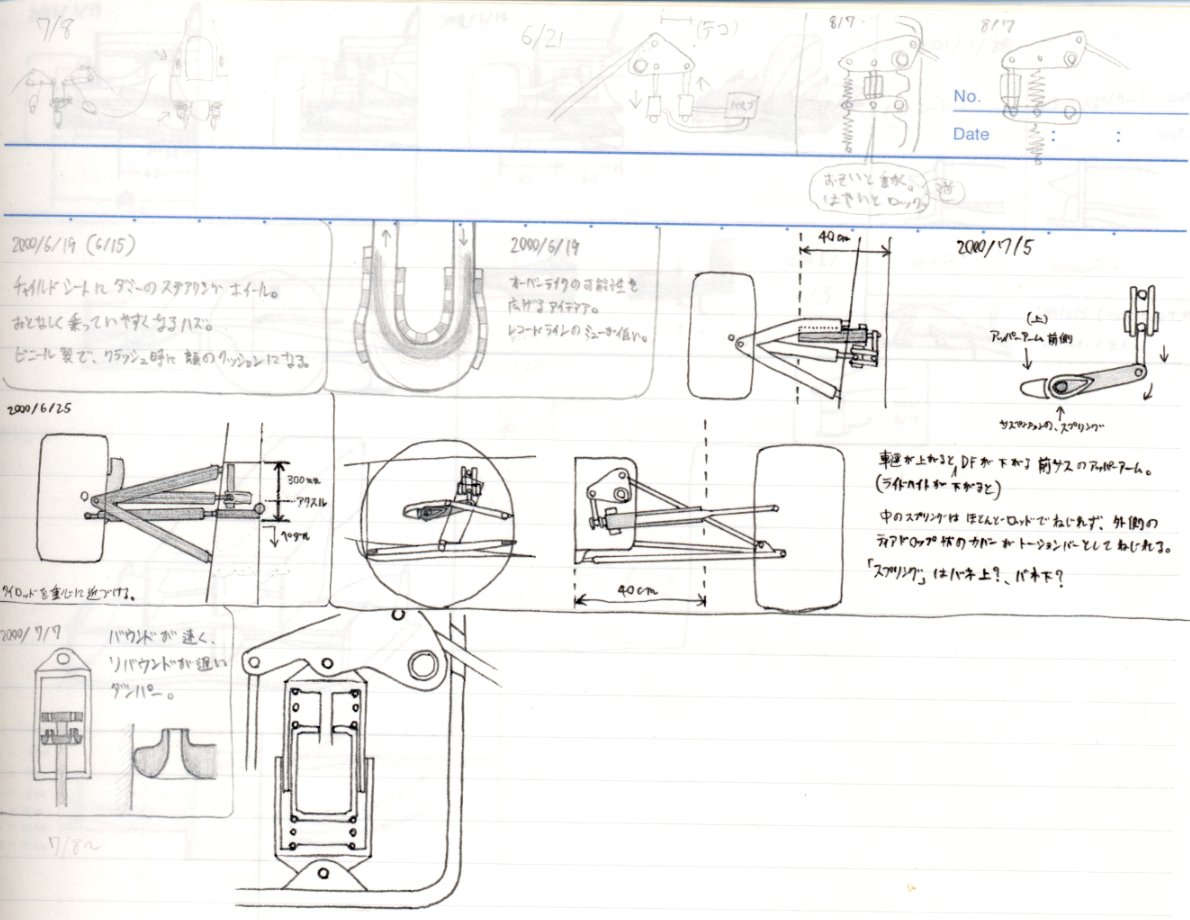 7/8
6/21
(テコ)
8/7
8/7
No.
Date : :
おそいと
はやいとロック。
2000/6/19 (6/15)
チャイルドシートにダミーのステアリングホイール。
おとなしく乗っていやすくなるハズ。
ビニール製で、クラッシュ時に顔のクッションになる。
2000/6/19
オーバーテイクの可能性を
広げるアイデア。
レコードラインのミューが低い。
40cm
2000/7/5
(上)
アッパーアーム前側
サスペンションの、スプリング
2000/6/25
300mm
アクスル
ペダル
タイロッドを重心に近づける。
40cm
車速が上がると、DFが下がる前サスのアッパーアーム。
(ライドハイトが下がると)
中のスプリングはほとんどロッドでねじれず、外側の
ティアドロップ状のカバーがトーションバーとしてねじれる。
「スプリング」はバネ上?、バネ下?
2000/7/7
バウンドが速く、
リバウンドが遅い
ダンパー。
7/8~